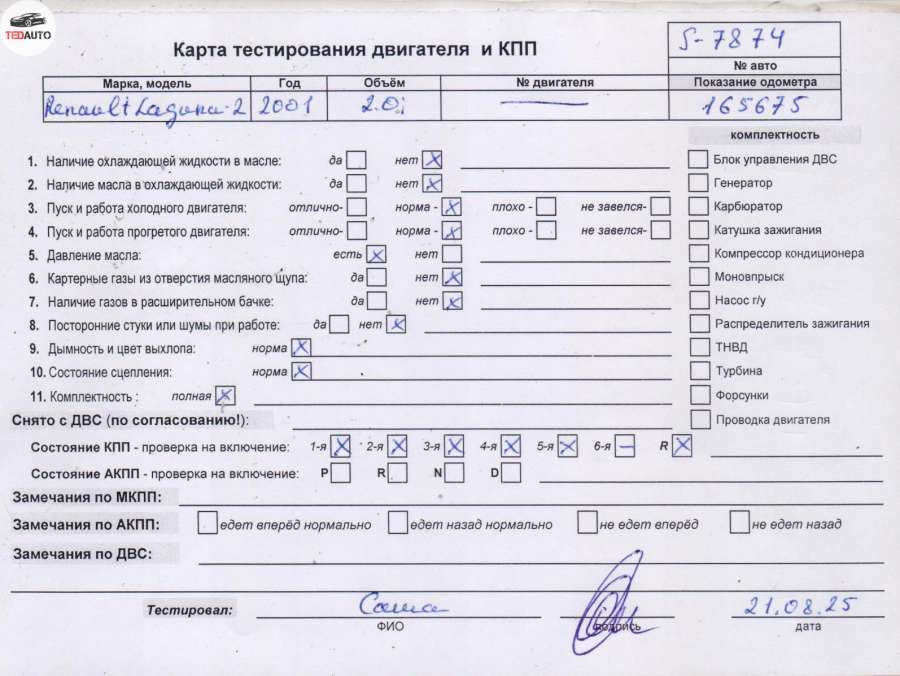 TEDAUTO
Карта тестирования двигателя и КПП
S-7874
№ авто
Марка, модель Год Объём № двигателя Показание одометра
Renault Laguna-2 2001 2.0i — 165675
комплектность
1. Наличие охлаждающей жидкости в масле: да нет X Блок управления ДВС
2. Наличие масла в охлаждающей жидкости: да нет X Генератор
3. Пуск и работа холодного двигателя: отлично- норма - X плохо - не завелся- Карбюратор
4. Пуск и работа прогретого двигателя: отлично- норма - X плохо - не завелся- Катушка зажигания
5. Давление масла: есть X нет Компрессор кондиционера
6. Картерные газы из отверстия масляного щупа: да нет X Моновпрыск
7. Наличие газов в расширительном бачке: да нет X Насос г/у
8. Посторонние стуки или шумы при работе: да нет X Распределитель зажигания
9. Дымность и цвет выхлопа: норма X ТНВД
10. Состояние сцепления: норма X Турбина
11. Комплектность : полная X Форсунки
Снято с ДВС (по согласованию!): Проводка двигателя
Состояние КПП - проверка на включение: 1-я X 2-я X 3-я X 4-я X 5-я X 6-я — R X
Состояние АКПП - проверка на включение: P R N D
Замечания по МКПП:
Замечания по АКПП: едет вперёд нормально едет назад нормально не едет вперёд не едет назад
Замечания по ДВС:
Тестировал: Саша 21.08.25
ФИО подпись дата